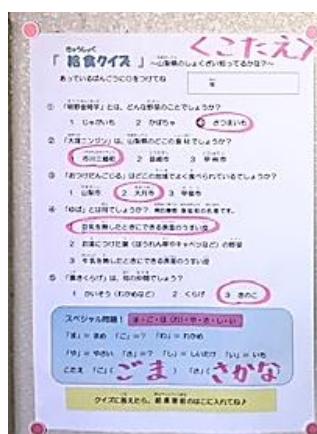 きゅうしょく
「 給食クイズ 」
くこたえ〉
～山梨県のしょくざい知ってるかな？～
あっているばんごうに○をつけてね
① 「明野金時芋」とは、どんな野菜のことでしょうか？
1 じゃがいも 2 かぼちゃ 3 さつまいも
② 「大塚ニンジン」は、山梨県のどこの食材でしょうか？
1 市川三郷町 2 韮崎市 3 甲州市
③ 「おつけだんごじる」はどこの地域でよく食べられているでしょうか？
1 山梨市 2 大月市 3 甲斐市
④ 「ゆば」とは何でしょうか？ 身延町の名産です。
1 豆乳を熱したときにできる表面のうすい皮
2 お湯につけた葉（ほうれん草やキャベツなど）の野菜
3 牛乳を熱したときにできる表面のうすい皮
⑤ 「裏きくらげ」は、何の仲間でしょうか？
1 かいそう（わかめなど） 2 くらげ 3 きのこ
スペシャル問題！ ま・ご・は（わ）・や・さ・し・い
「ま」＝ まめ 「ご」＝？ 「わ」＝ わかめ
「や」＝ やさい 「さ」＝？ 「し」＝ しいたけ 「い」＝ いも
こたえ 「ご」（ ごま ） 「さ」（ さかな
クイズに答えたら、給食室前のはこに入れてね♪